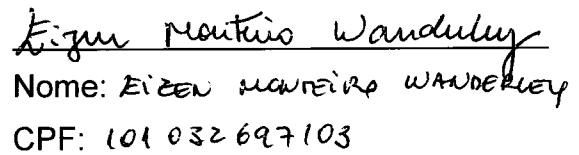 Eizen Monteiro Wanderley
Nome: EIZEN MONTEIRO WANDERLEY
CPF: 101 032 697103